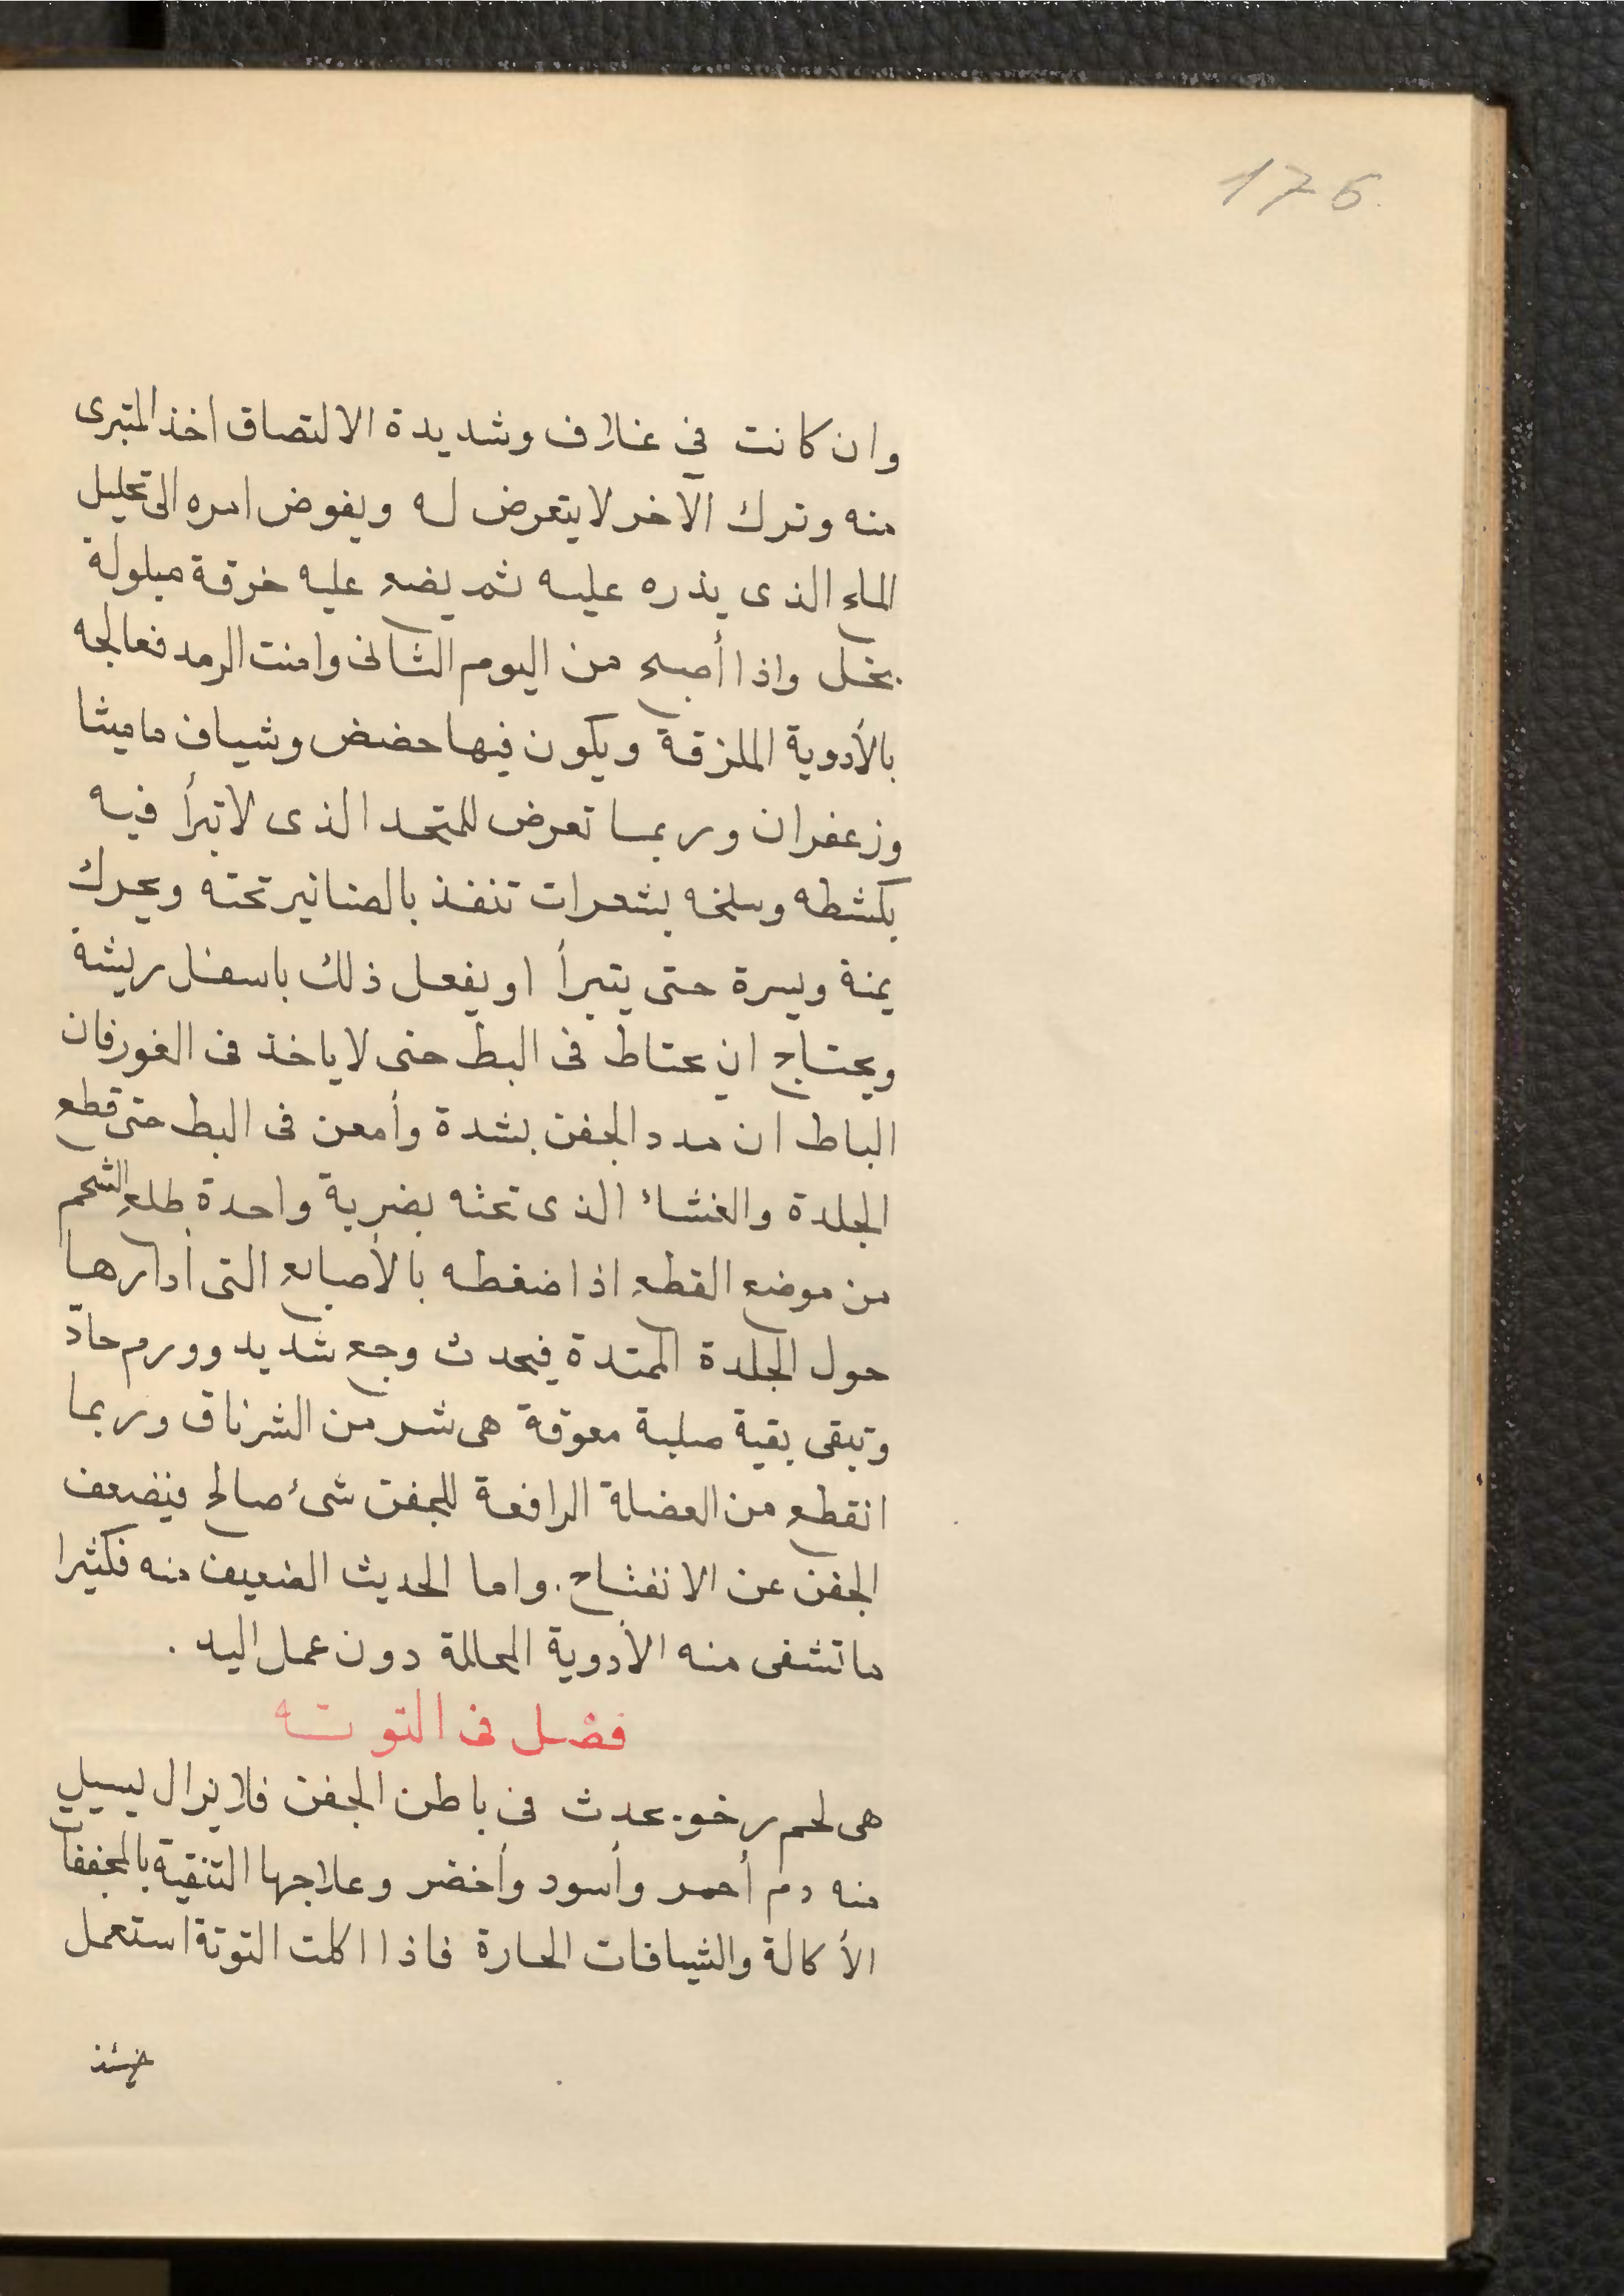 175
وان كانت في غلاف وشديدة الالتصاق اخذ المتبرى
منه وترك الآخر لا يتعرض له ويفوض امره الى تحليل
الماء الذى يذره عليه ثم يضع عليه خرقة مبلولة
بخل واذا أصبح من اليوم الثانى وامنت الرمد فعالجه
بالأدوية الملزقة ويكون فيها حضض وشياف ماميثا
وزعفران وربما تعرض للمتحد الذى لا تبرأ فيه
بكشطه وسلخه بشعرات تنفذ بالصنانير تحته ويحرك
يمنة ويسرة حتى يتبرأ او يفعل ذلك باسفل ريشة
ويحتاج ان يحتاط فى البط حتى لا ياخذ فى الغور فان
الباط ان مدد الجفن بشدة وأمعن فى البط حتى قطع
الجلدة والغشاء الذى تحثه بضربة واحدة طلع الشحم
من موضع القطع اذا ضغطه بالأصابع التى أدارها
حول الجلدة الممتدة فيحدث وجع شديد وورم حادّ
وتبقى بقية صلبة معوقة هى شر من الشرناق وربما
انقطع من العضلة الرافعة للجفن شىء صالح فيضعف
الجفن عن الانفتاح. واما الحديث الضعيف منه فكثيرا
ما تشفى منه الأدوية المحاللة دون عمل اليد .
فصل فى التوته
هى لحم رخو يحدث فى باطن الجفن فلا يزال يسيل
منه دم أحمر وأسود وأخضر وعلاجها التنقية بالمجففات
الأكالة والشيافات الحارة فاذا اكلت التوتة استعمل